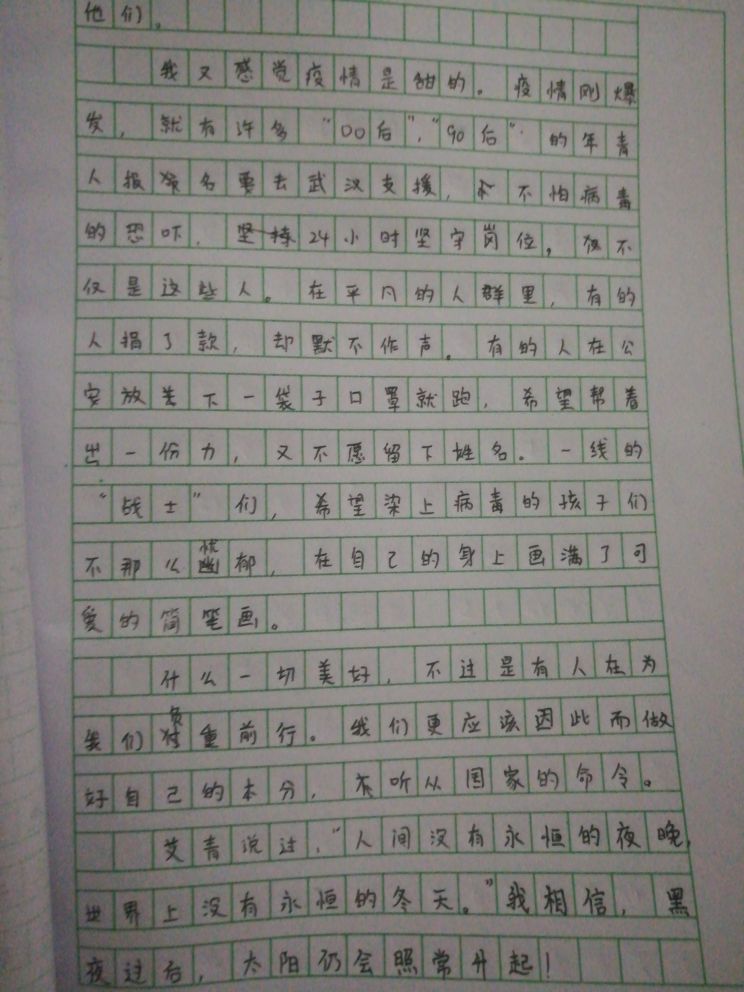 他们。
我又感觉疫情是甜的。疫情刚爆
发，就有许多“00后”，“90后”的年青
人报名要去武汉支援，不怕病毒
的恐吓，坚持24小时坚守岗位。不
仅是这些人。在平凡的人群里，有的
人捐了款，却默不作声。有的人在公
安放下一袋子口罩就跑，希望帮着
出一份力，又不愿留下姓名。一线的
“战士”们，希望染上病毒的孩子们
不那么忧郁，在自己的身上画满了可
爱的简笔画。
什么一切美好，不过是有人在为
我们负重前行。我们更应该因此而做
好自己的本分，听从国家的命令。
艾青说过，“人间没有永恒的夜晚，
世界上没有永恒的冬天。”我相信，黑
夜过后，太阳仍会照常升起！